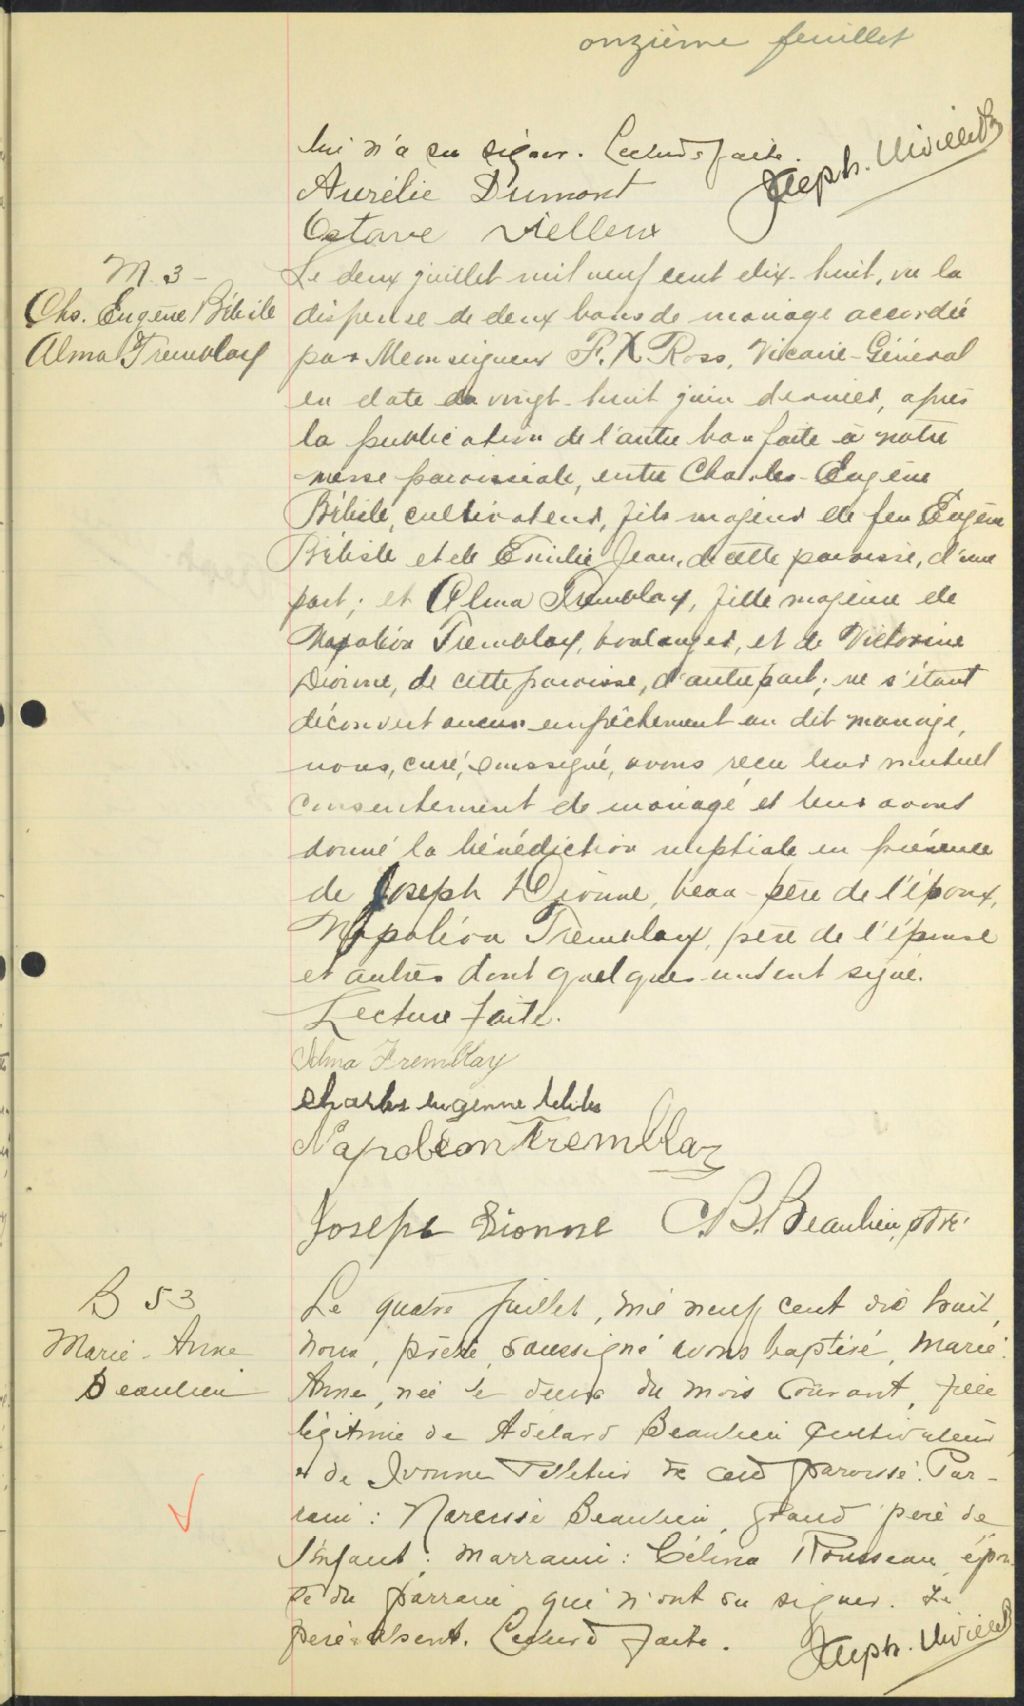 onzième feuillet
lui n'a su signer. Lecture faite.
Aurélie Dumont
Octave Vielleux
M. 3 -
Chs. Eugène Bélisle
Alma Tremblay
Le deux juillet mil neuf cent dix-huit, vu la
dispense de deux bans de mariage accordée
par Monseigneur F. X. Ross, Vicaire-Général
en date du vingt-huit juin dernier, après
la publication de l'autre ban faite à notre
messe paroissiale, entre Charles-Eugène
Bélisle, cultivateur, fils majeur de feu Eugène
Bélisle et de Emilie Jean, de cette paroisse, d'une
part; et Alma Tremblay, fille majeure de
Napoléon Tremblay, boulanger, et de Victorine
Dionne, de cette paroisse, d'autre part; ne s'étant
découvert aucun empêchement au dit mariage,
nous, curé, soussigné, avons reçu leur mutuel
consentement de mariage et leur avons
donné la bénédiction nuptiale en présence
de Joseph Dionne, beau-père de l'époux,
Napoléon Tremblay, père de l'épouse
et autres dont quelques uns ont signé.
Lecture faite.
Alma Tremblay
charles eugenne
Napoléon Tremblay
Joseph Dionne C. B. Beaulieu, ptre.
B 53
Marie-Anne
Beaulieu
Le quatre juillet, mil neuf cent dix huit,
nous, prêtre, soussigné avons baptisé, Marie
Anne, née le deux du mois courant, fille
légitime de Adélard Beaulieu cultivateur
et de Ivonne Pelletier de cette paroisse. Par-
rain: Narcisse Beaulieu, grand père de
l'enfant; marraine: Célina Rousseau, épou-
se du parrain qui n'ont su signer. Le
père absent. Lecture faite.